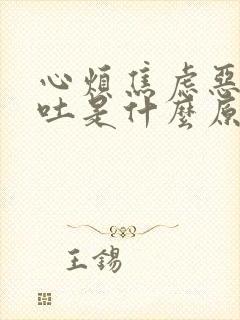 心煩焦虑惡
吐是什麼原
王錫